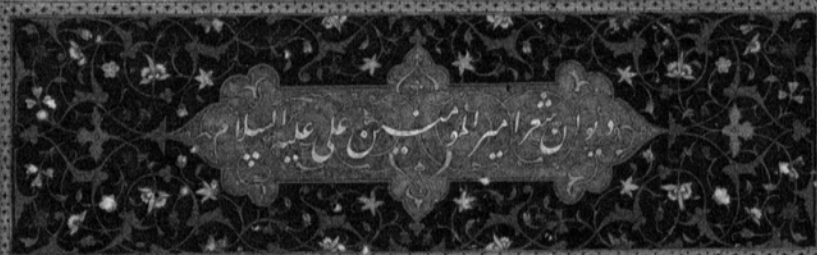 دیوان شعر امیر المومنین علی علیه السلام